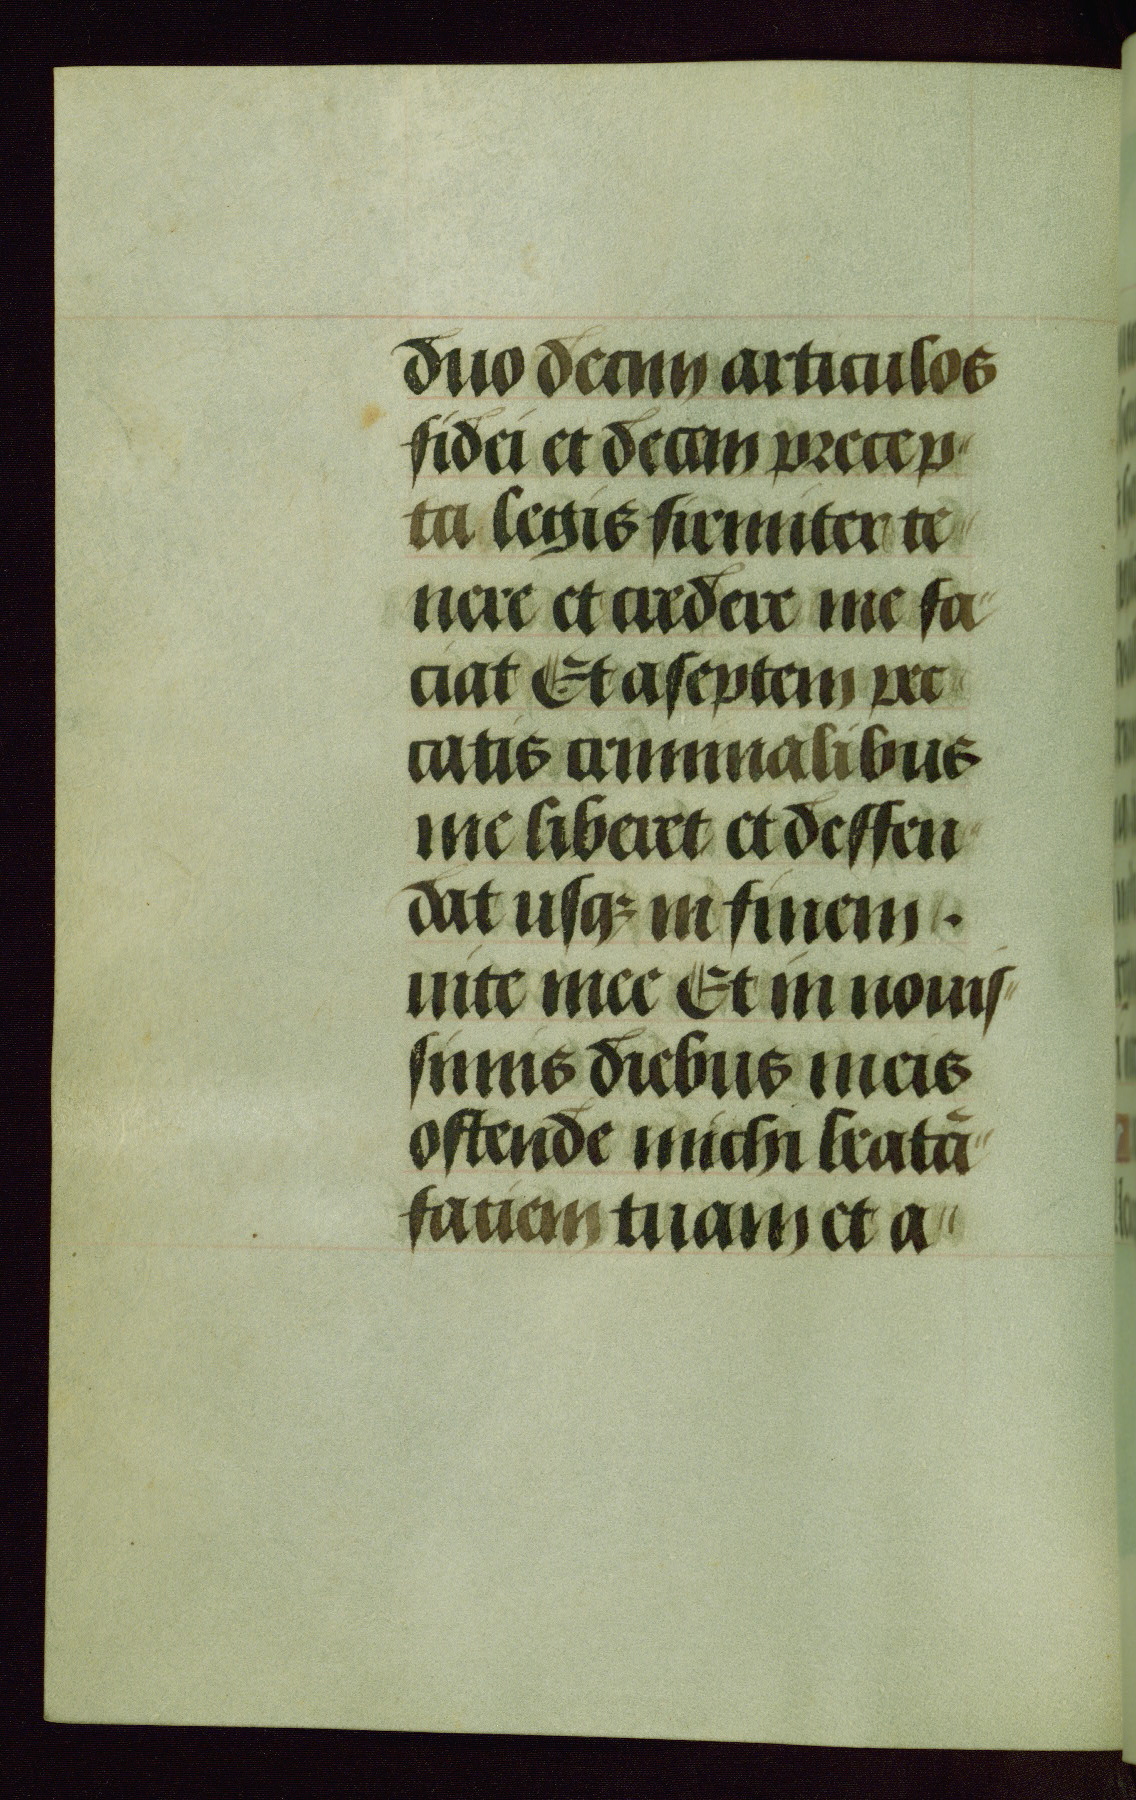 duo decim articulos
fidei et decem precep"
ta legis firmiter te"
nere et credere me fa"
ciat Et a septem pec"
catis criminalibus
me liberet et deffen"
dat usq; in finem .
uite mee Et in nouis"
simis diebus meis
ostende michi beatā"
faciem tuam et a"